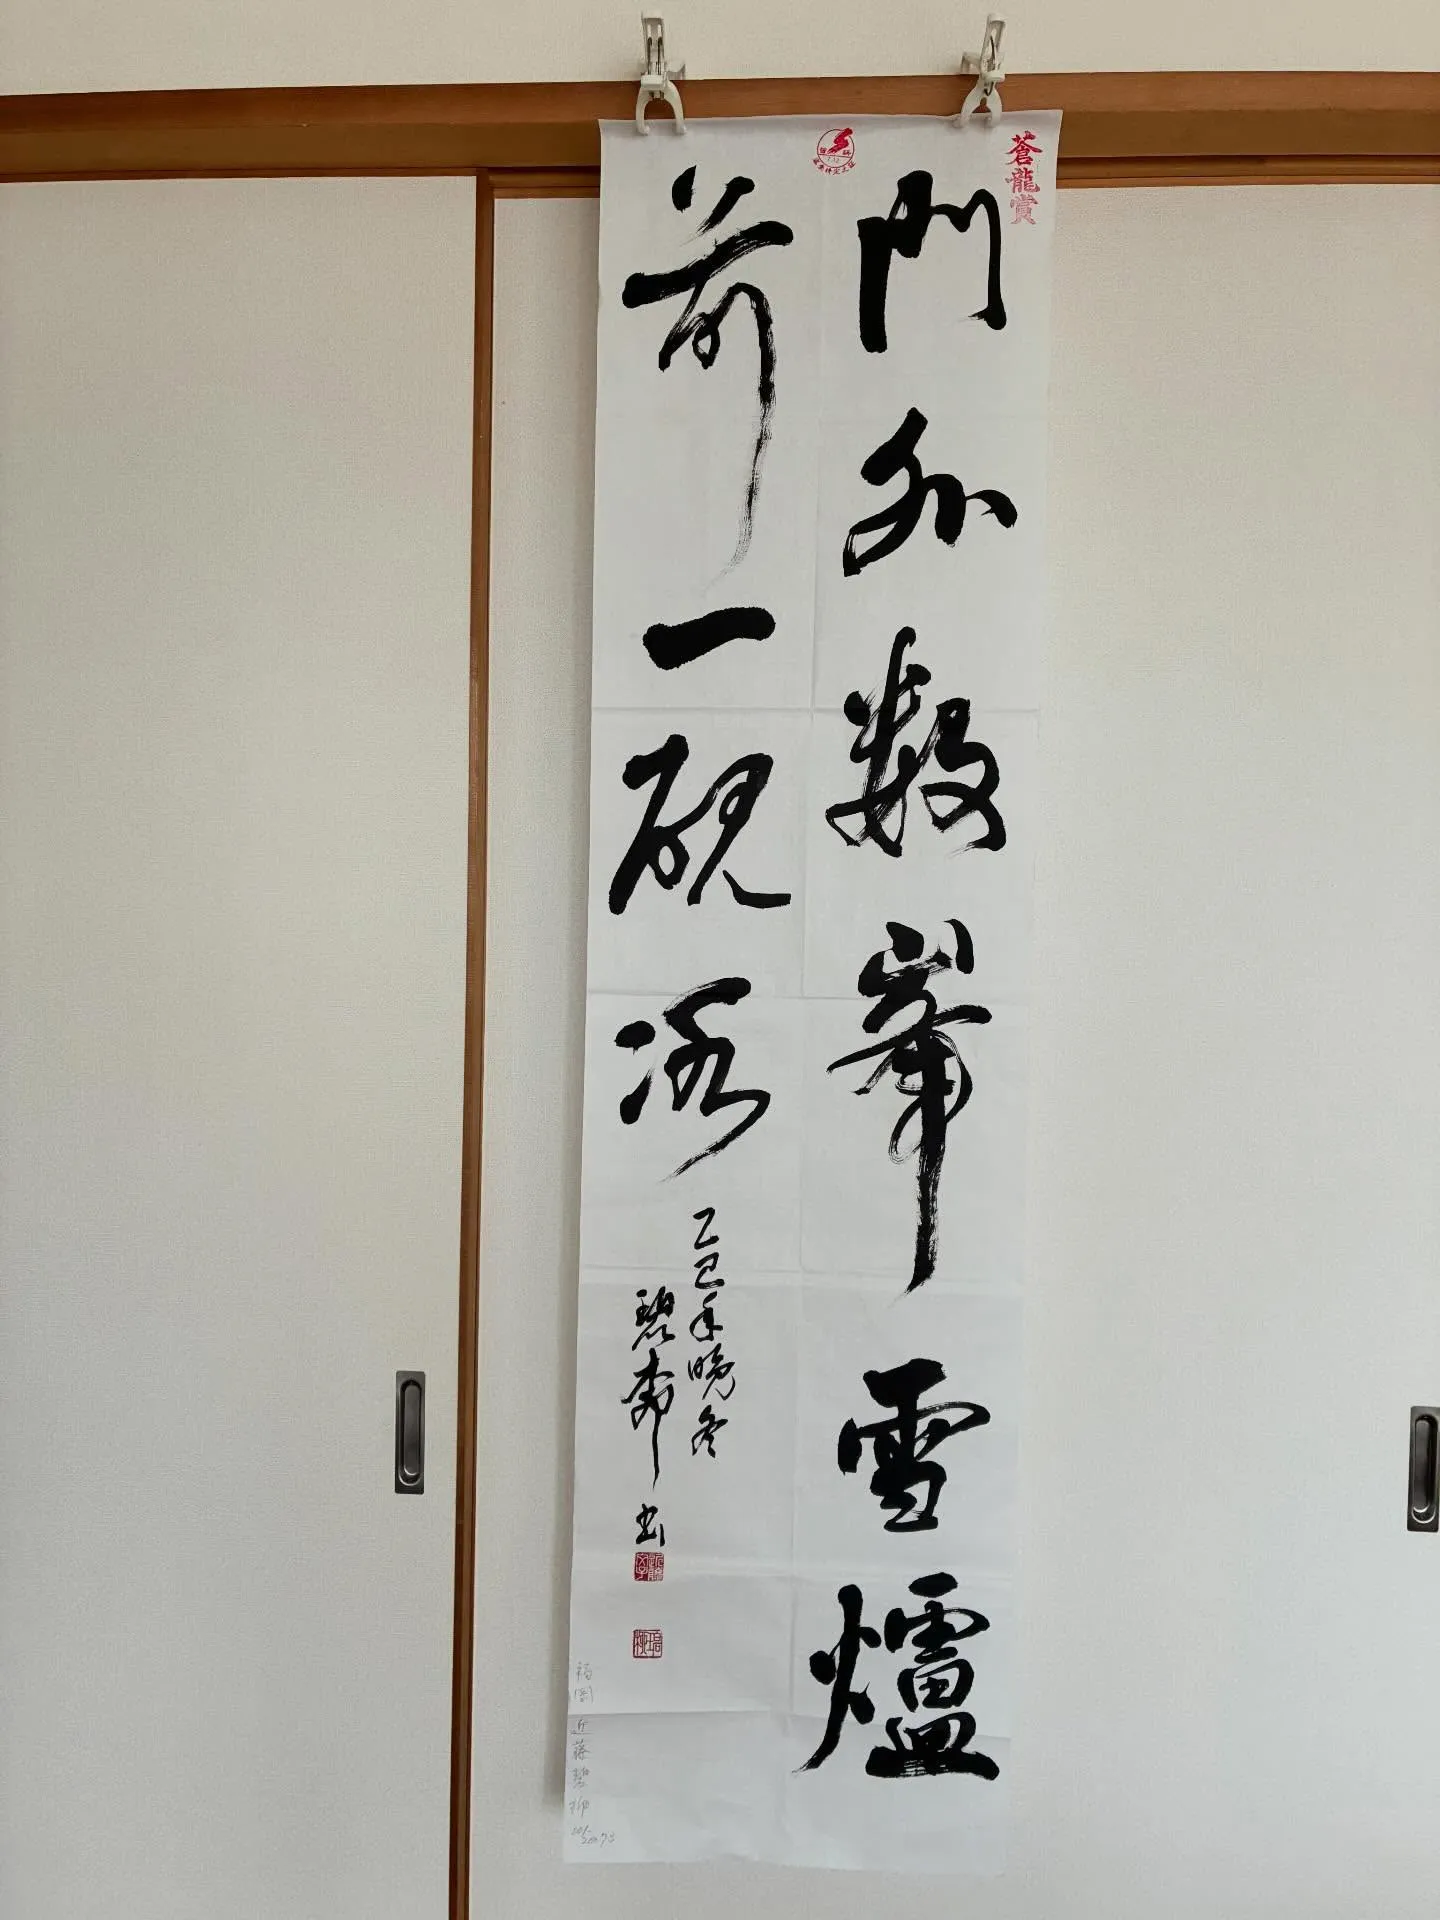 蒼龍賞
門外數峯雪爐
前一硯冰
乙巳年晩冬
碧柳書
福岡
近藤碧柳